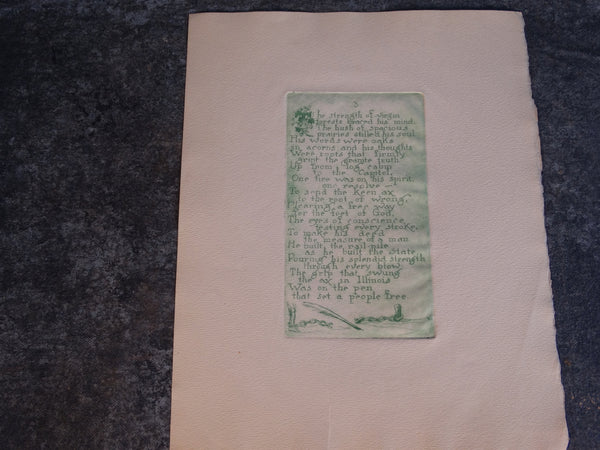 3
The strength of virgin
forests braced his mind;
The hush of spacious
prairies stilled his soul.
His words were oaks
in acorns and his thoughts
Were roots that firmly
gript the granite truth.
Up from log cabin
to the Capitol,
One fire was on his spirit,
one resolve —
To send the keen ax
to the root of wrong,
Clearing a free way
for the feet of God,
The eyes of conscience
testing every stroke,
To make his deed
the measure of a man.
He built the rail-pile
as he built the State,
Pouring his splendid strength
through every blow:
The grip that swung
the ax in Illinois
Was on the pen
that set a people free.